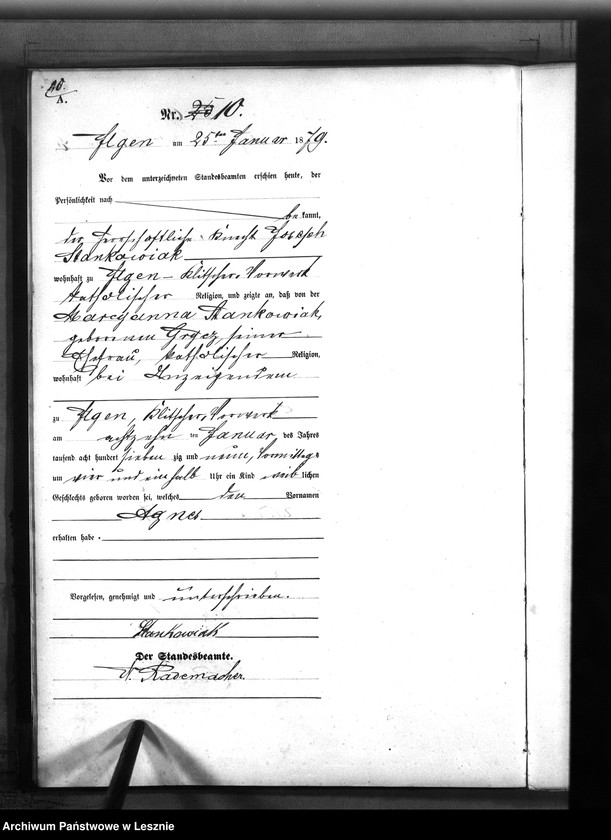 20.
A.
Nr. 10.
Ilgen am 25ten Januar 1879.
Vor dem unterzeichneten Standesbeamten erschien heute, der
Persönlichkeit nach
bekannt,
der herrschaftliche Knecht Joseph
Stankowiak
wohnhaft zu Ilgen – Klitscher, Vorwerk
katholischer Religion, und zeigte an, daß von der
Maryanna Stankowiak,
geborenen seiner
Ehefrau, katholischer Religion,
wohnhaft bei Anzeigendem
zu Ilgen, Klitscher, Vorwerk
am achtzehn ten Januar des Jahres
tausend acht hundert siebenzig und neun, Vormittags
um vier und ein halb Uhr ein Kind weiblichen
Geschlechts geboren worden sei, welches den Vornamen
Agnes
erhalten habe.
Vorgelesen, genehmigt und unterschrieben.
Stankowiak
Der Standesbeamte.
Rademacher.
Archiwum Państwowe w Lesznie